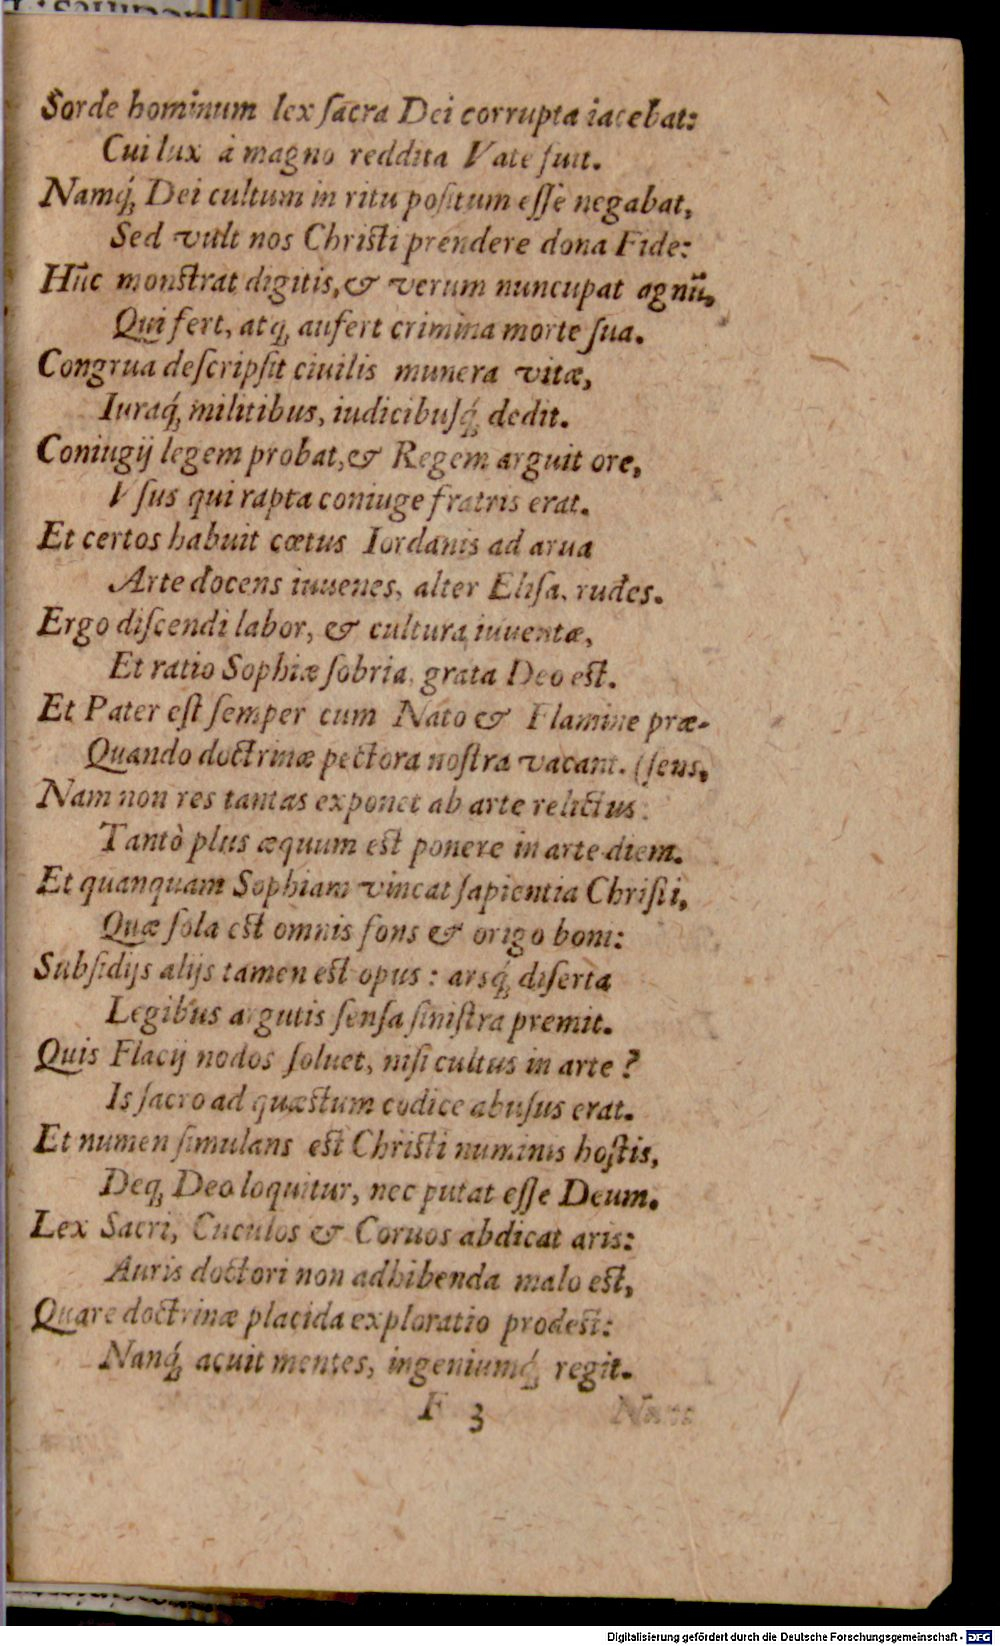 Sorde hominum lex sacra Dei corrupta iacebat:
Cui lux à magno reddita Vate fuit.
Namq́; Dei cultum in ritu positum esse negabat,
Sed vult nos Christi prendere dona Fide:
Hūc monstrat digitis, & verum nuncupat agnū,
Qui fert, atq; aufert crimina morte sua.
Congrua descripsit ciuilis munera vitæ,
Iuraq́; militibus, iudicibusq́; dedit.
Coniugij legem probat, & Regem arguit ore,
Vsus qui rapta coniuge fratris erat.
Et certos habuit cœtus Iordanis ad arua
Arte docens iuuenes, alter Elisa, rudes.
Ergo discendi labor, & cultura iuuentæ,
Et ratio Sophiæ sobria, grata Deo est.
Et Pater est semper cum Nato & Flamine præ-
Quando doctrinæ pectora nostra vacant. (sens,
Nam non res tantas exponet ab arte relictus:
Tantò plus æquum est ponere in arte diem.
Et quanquam Sophiam vincat sapientia Christi,
Quæ sola est omnis fons & origo boni:
Subsidijs alijs tamen est opus: arsq́; diserta
Legibus argutis sensa sinistra premit.
Quis Flacij nodos soluet, nisi cultus in arte?
Is sacro ad quæstum codice abusus erat.
Et numen simulans est Christi numinis hostis,
Deq; Deo loquitur, nec putat esse Deum.
Lex Sacri, Cuculos & Coruos abdicat aris:
Auris doctori non adhibenda malo est,
Quare doctrinæ placida exploratio prodest:
Nanq́; acuit mentes, ingeniumq́; regit.
F 3
Digitalisierung gefördert durch die Deutsche Forschungsgemeinschaft - DFG